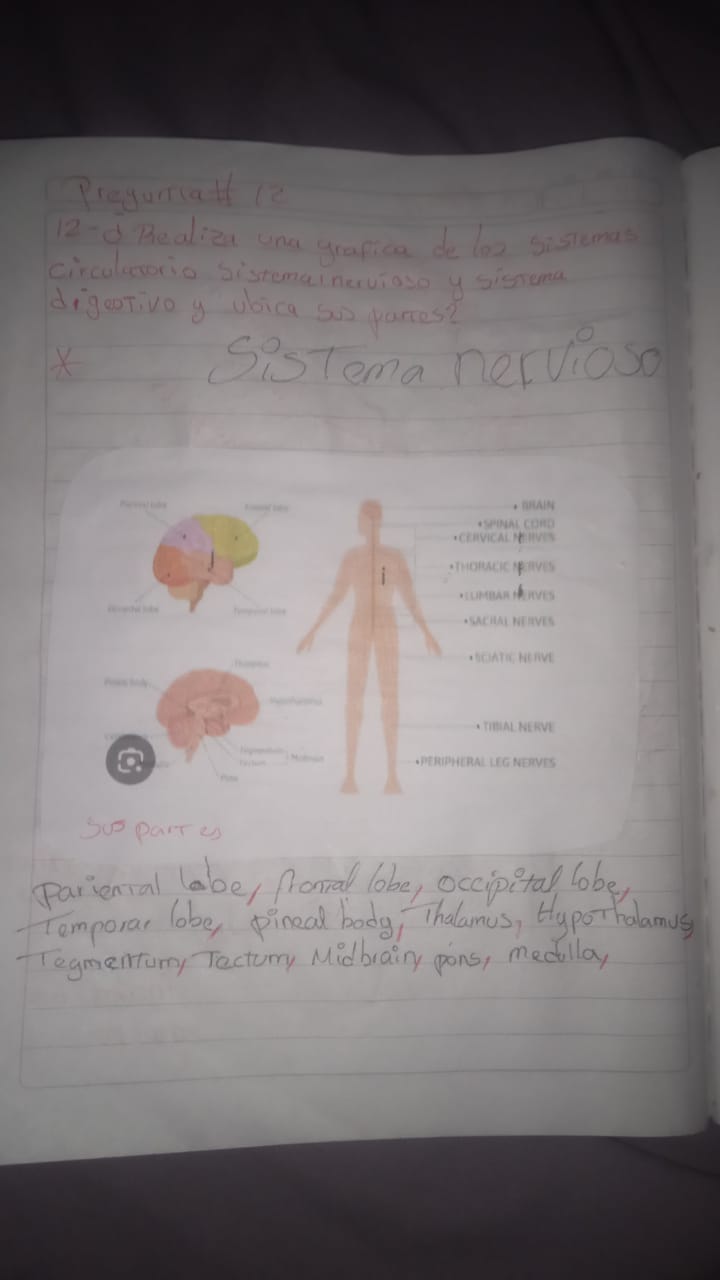 Pregunta # 12
12-¿ Realiza una grafica de los sistemas
circulatorio sistema nervioso y sistema
digestivo y ubica sus partes?
* Sistema nervioso
Parietal lobe
Frontal lobe
Occipital lobe
Temporal lobe
Thalamus
Pineal body
Hypothalamus
Tegmentum
Tectum
Midbrain
Pons
• BRAIN
•SPINAL CORD
•CERVICAL NERVES
•THORACIC NERVES
•LUMBAR NERVES
•SACRAL NERVES
•SCIATIC NERVE
• TIBIAL NERVE
•PERIPHERAL LEG NERVES
sus partes
Pariental lobe, frontal lobe, occipital lobe,
Temporar lobe, pineal body, Thalamus, Hypothalamus,
Tegmentum, Tectum, Midbrain, pons, medulla,